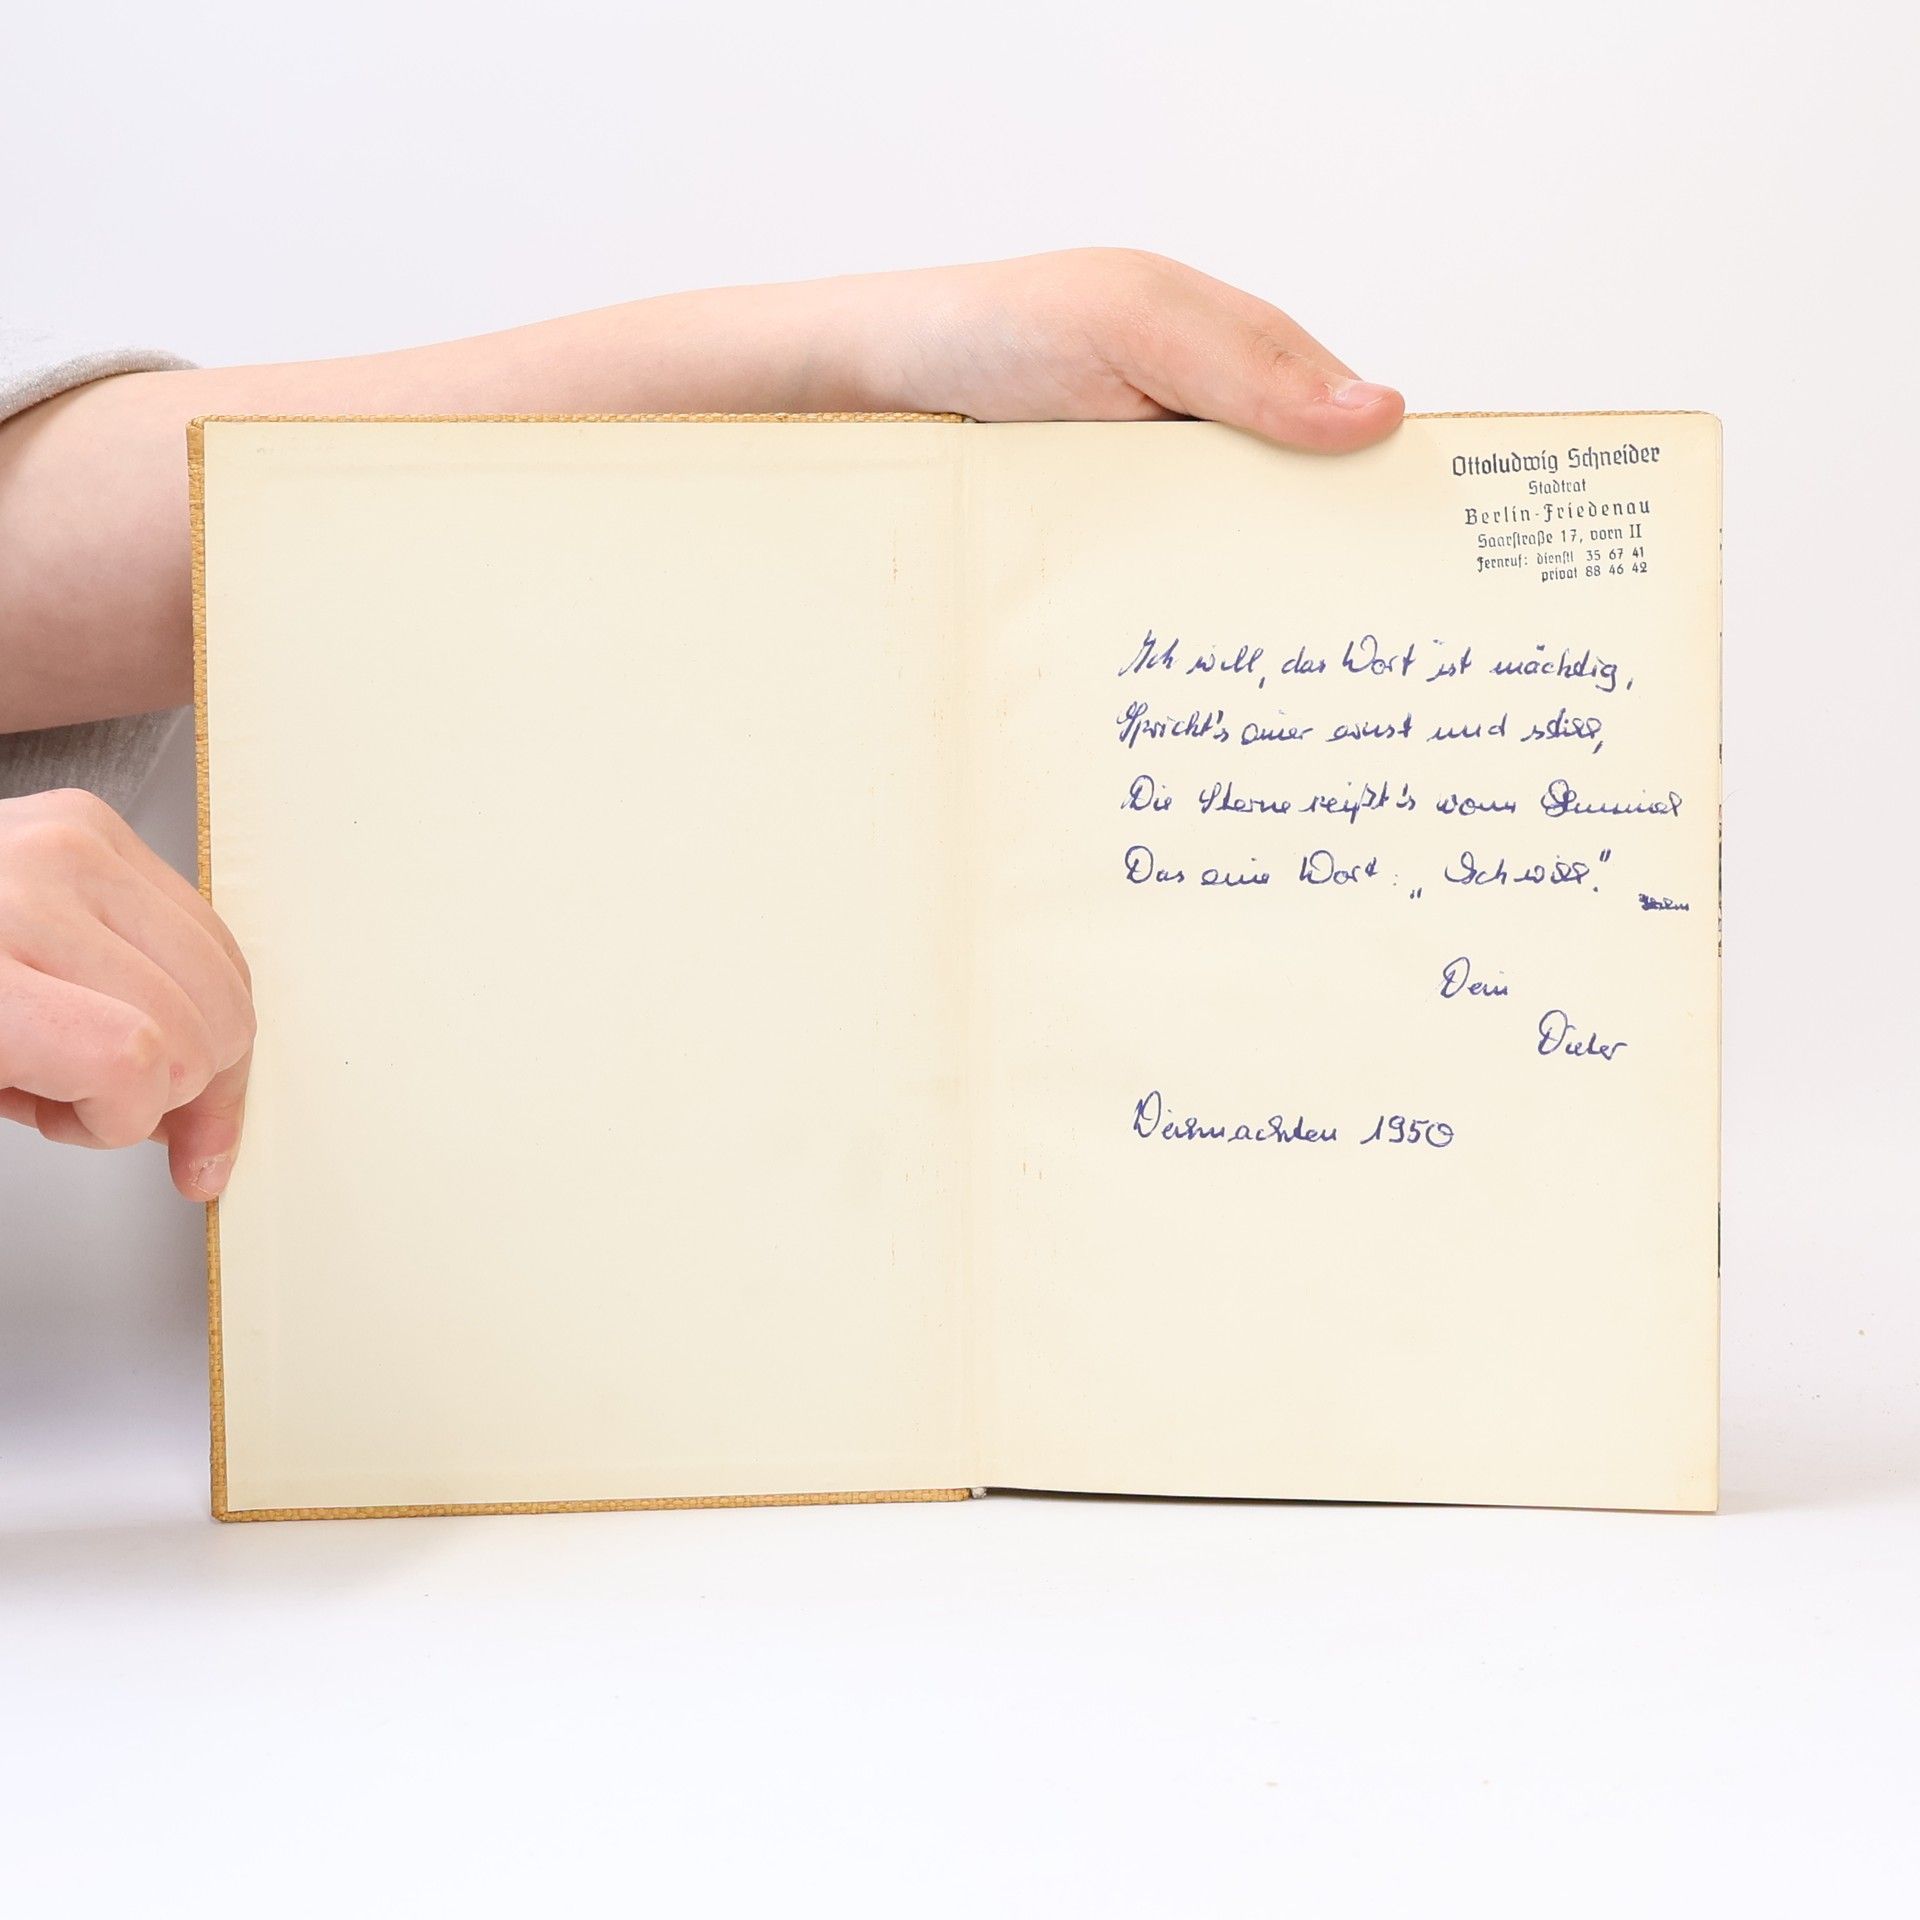 Ottoludwig Schneider
Stadtrat
Berlin-Friedenau
Saarstraße 17, vorn II
Fernruf: dienstl 35 67 41
privat 88 46 42
Ich will, das Wort ist mächtig,
Spricht's einer ernst und still,
Die Sterne reißt's vom Himmel
Das eine Wort: „Ich will."
Dein
Dieter
Weihnachten 1950